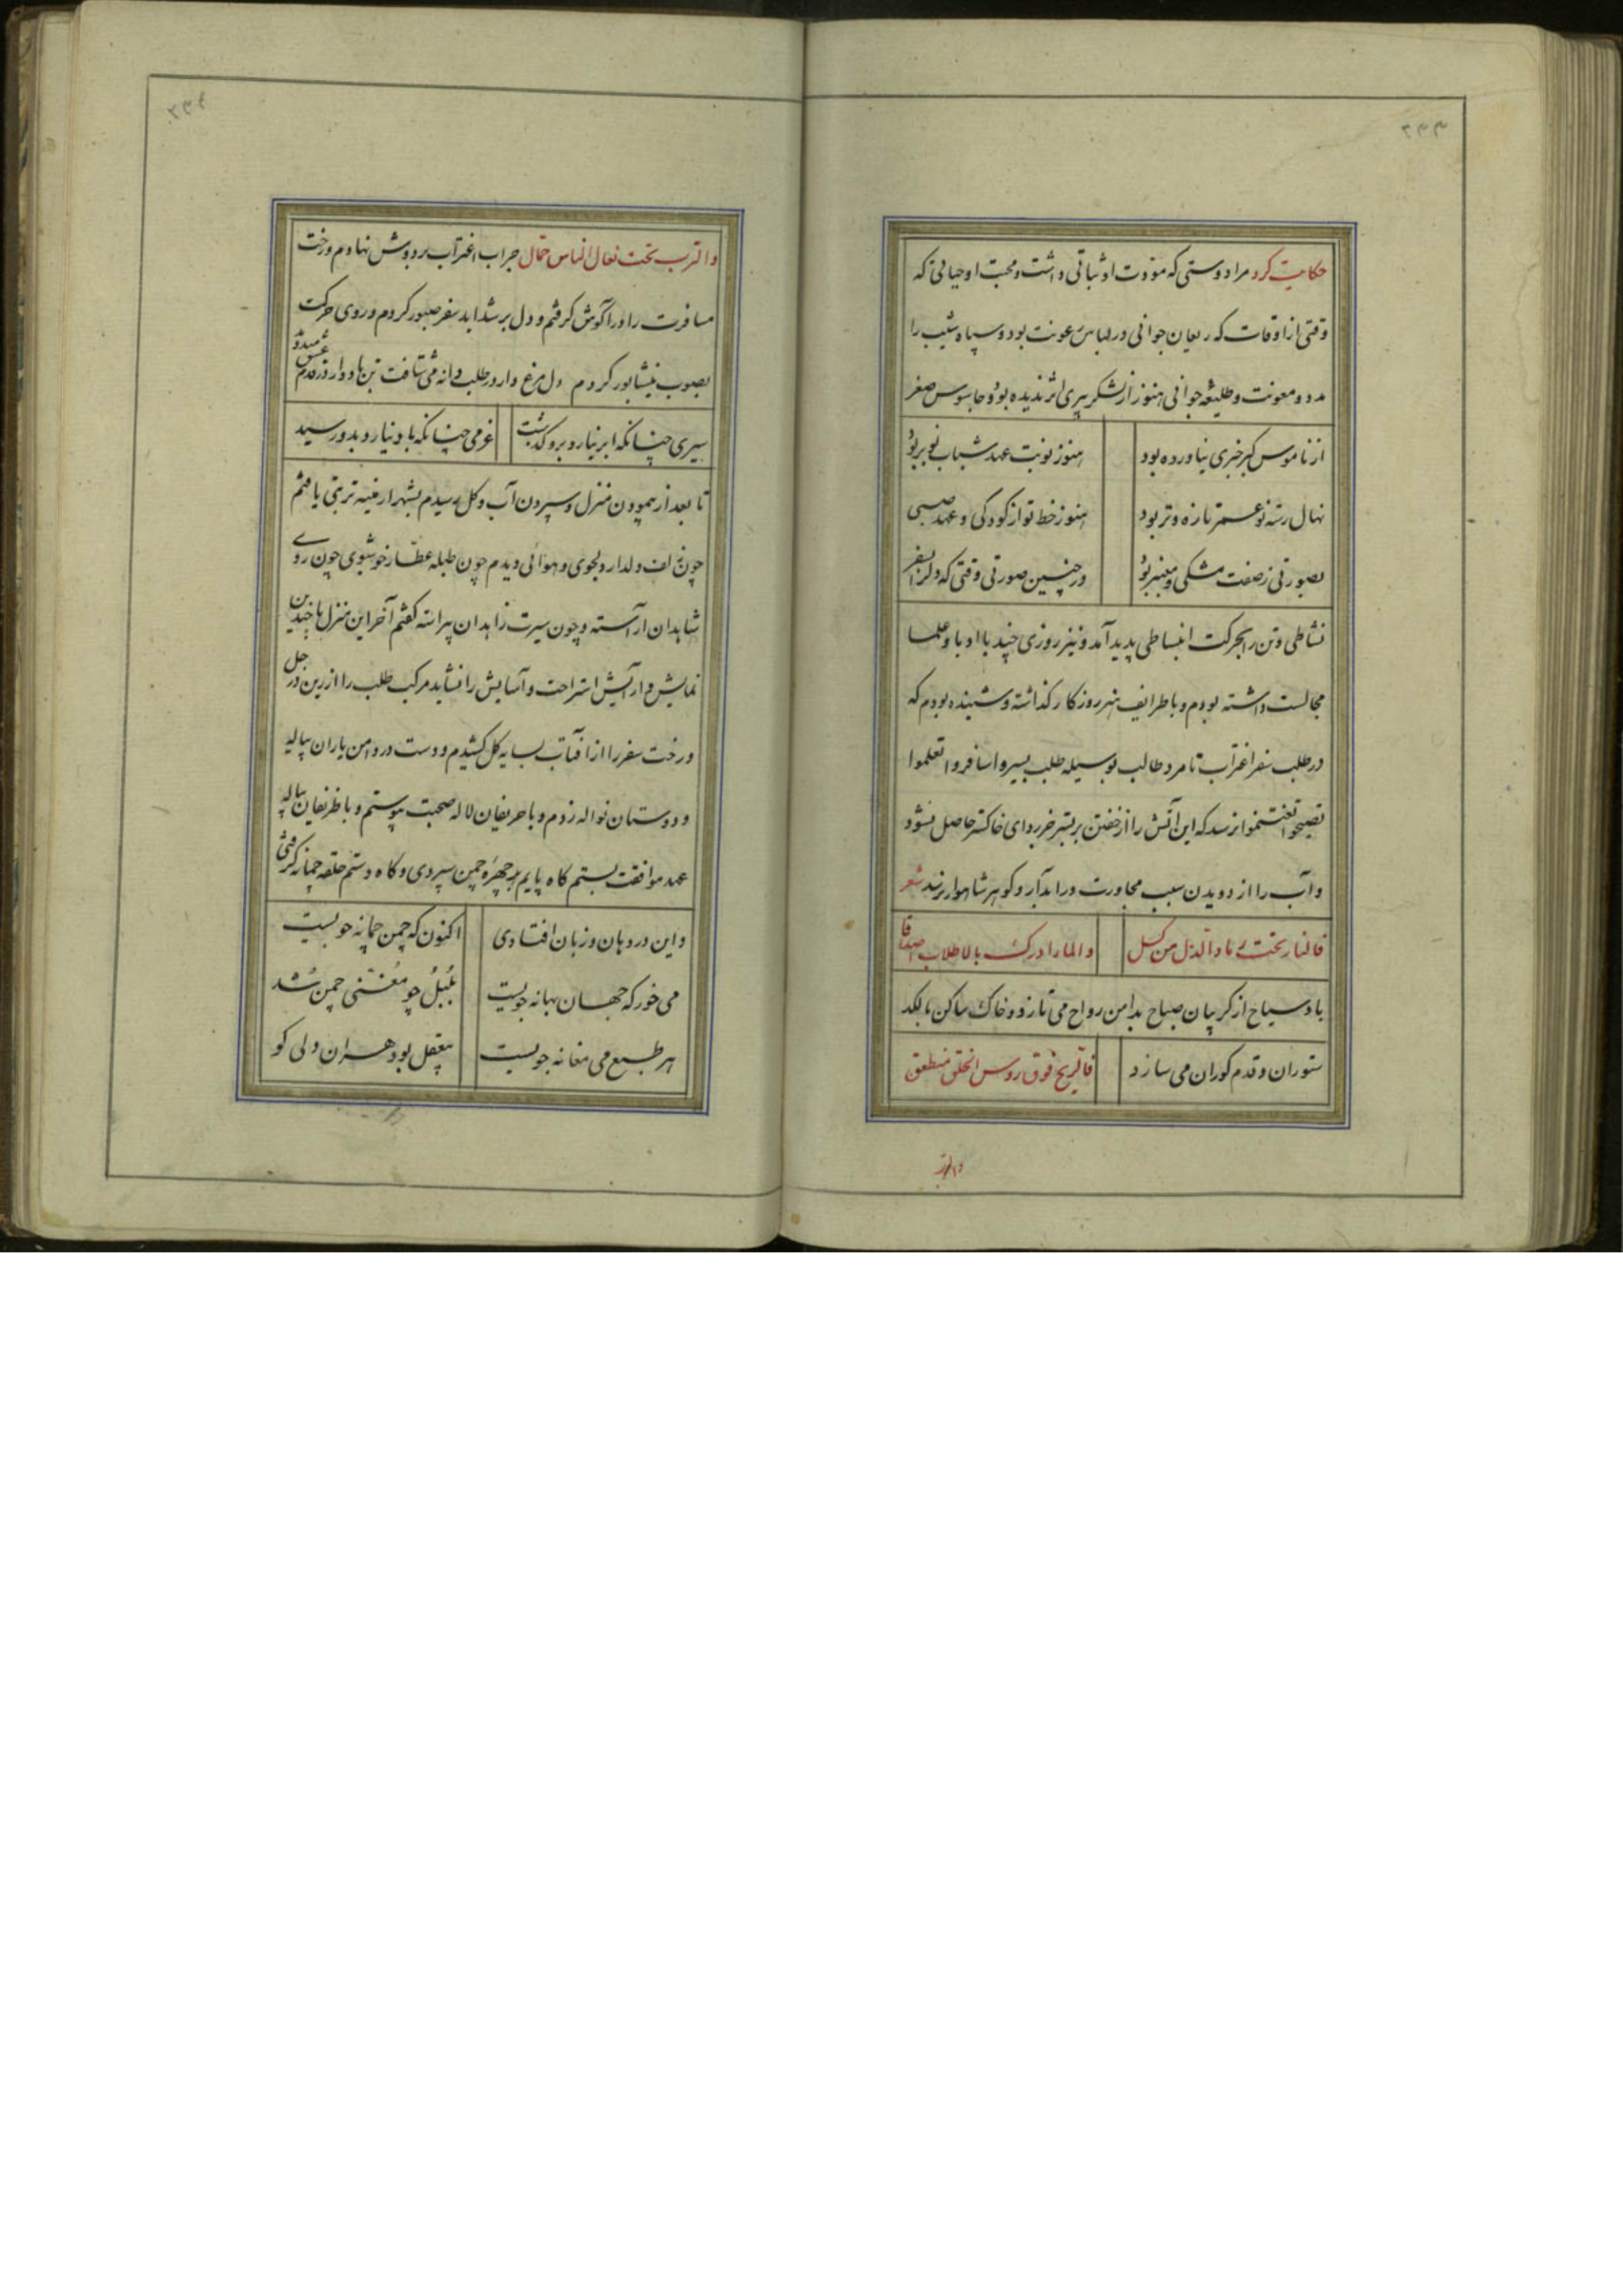 ۲۳۳
حکایت کرد مرا دوستی که مودت او ثباتی داشت و محبت او حیاتی که
وقتی از اوقات که ریعان جوانی در لباس رعونت بود و سپاه شیب را
مدد و معونت و طلیعه جوانی هنوز از لشکر پیری اثر ندیده بود و جاسوس صغر
از ناموس کبر خبری نیاورده بود هنوز نوبت عهد شباب نو بر بود
نهال رسته نو عمر تازه و تر بود هنوز خط تو از کودکی و عهد صبی
بصورتی ز صفت مشکی و معنبر بود در چنین صورتی وقتی که دلرا بسفر
نشاطی و تن را بحرکت انبساطی پدید آمد و نیز روزی چند با ادبا و علما
مجالست داشته بودم و با طرایف هنر روزگار گذاشته و شنیده بودم که
در طلب سفر اغتراب تا مرد طالب بوسیله طلب بسیروا سافروا تعلموا
تصیحوا تغتنموا نرسد که این آتش را از خفتن بر بستر خاکستر حاصل نشود
و آب را از دویدن سبب مجاورت در آبدار و گوهر شاهوار رسد شعر
فالنار تحت رماد الذل من کسل والما ادرک بالاطلاب اصدافا
باد سیاح از گریبان صباح بدامن رواح می تازد و خاک ساکن با لگد
ستوران و قدم کوران می سازد فالریح فوق روس الخلق منطلق
والترب
۲۳۴
والترب تحت نعال الناس حمال جراب اغتراب بر دوش نهادم و رخت
مسافرت را در آغوش گرفتم و دل بر شداید سفر صبور کردم و روی حرکت
بصوب نیشابور کردم دل مرغ وار در طلب دانه می شتافت تن باد وار در قدم عیش میدوید
سیری چنانکه ابر نیارد برو گذشت عزمی چنانکه باد نیارد بدو رسید
تا بعد از پیمودن منزل و سپردن آب و گل رسیدم بشهر ارمنیه تربتی یافتم
چون زلف دلدار دلجوی و هوائی دیدم چون طبله عطار خوشبوی چون روی
شاهدان آراسته و چون سیرت زاهدان پیراسته گفتم آخر این منزل با چندین
نمایش و آرایش استراحت و آسایش را نشاید مرکب طلب را از زین در جل
و رخت سفر را از آفتاب بسایه گل کشیدم و دست در دامن یاران پیاله
و دوستان نواله زدم و با حریفان لاله صحبت پیوستم و با ظریفان پیاله
عهد موافقت بستم گاه پایم بر چهره چمن سپردی و گاه دستم حلقه چمانه گرفتی
و این در دهان و زبان افتادی اکنون که چمن چمانه جویست
می خور که جهان بهانه جویست بلبل چو مغنی چمن شد
هر طبع می مغانه جویست بیعقل بود هران دلی کو